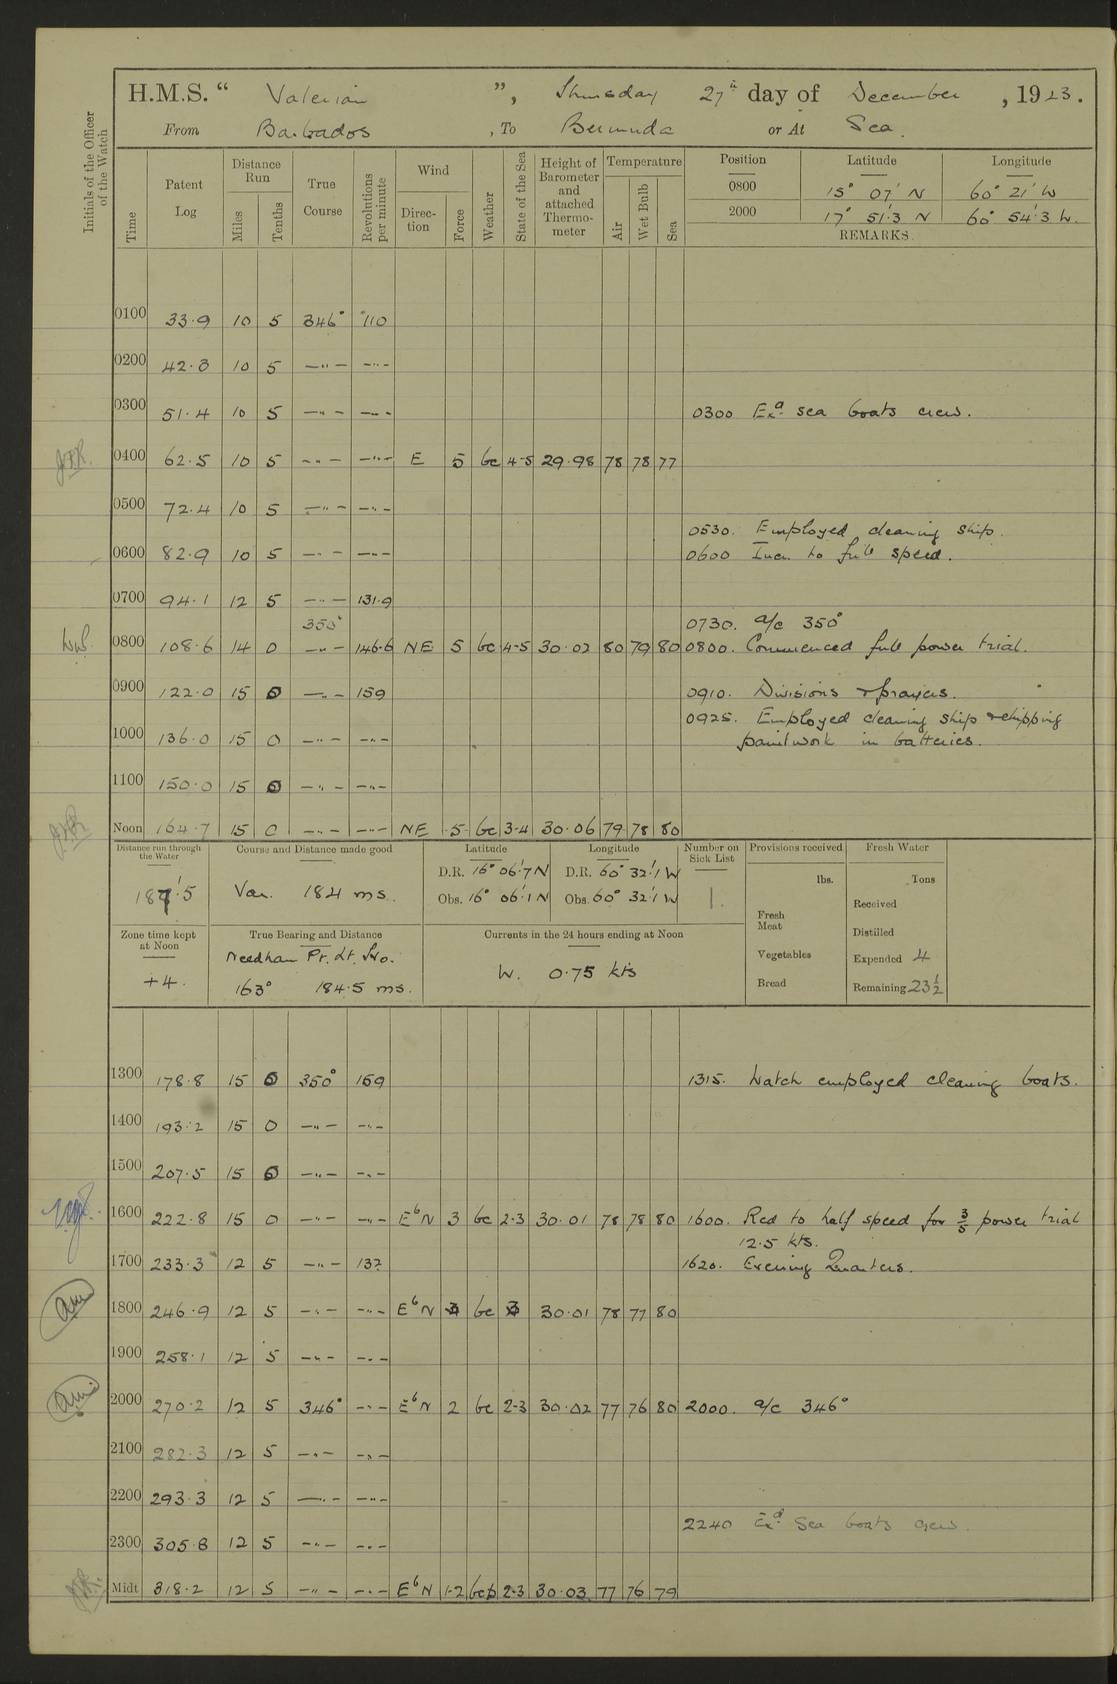 H.M.S. " Valerian ", Thursday 27th day of December, 1923.
From Barbados, To Bermuda or At Sea.
Initials of the Officer of the Watch
Time | Patent Log | Distance Run Miles Tenths | True Course | Revolutions per minute | Wind Direction Force | Weather | State of the Sea | Height of Barometer and attached Thermometer | Temperature Air Wet Bulb Sea | Position | Latitude | Longitude
0800 15° 07' N 60° 21' W
2000 17° 51'.3 N 60° 54'.3 W.
REMARKS.
0100 33.9 10 5 346° 110
0200 42.3 10 5 —"— —"—
0300 51.4 10 5 —"— —"— 0300 Exd sea boats crew.
0400 62.5 10 5 —"— —"— E 5 bc 4-5 29.98 78 78 77
0500 72.4 10 5 —"— —"—
0530. Employed cleaning ship.
0600 82.9 10 5 —"— —"— 0600 Incr. to full speed.
0700 94.1 12 5 —"— 131.9
350° 0730. a/c 350°
0800 108.6 14 0 —"— 146.6 NE 5 bc 4-5 30.02 80 79 80 0800. Commenced full power trial.
0900 122.0 15 0 —"— 159 0910. Divisions & prayers.
0925. Employed cleaning ship & chipping
1000 136.0 15 0 —"— —"— paintwork in batteries.
1100 150.0 15 0 —"— —"—
Noon 164.7 15 0 —"— —"— NE 5 bc 3-4 30.06 79 78 80
Distance run through the Water | Course and Distance made good | Latitude | Longitude | Number on Sick List | Provisions received | Fresh Water
D.R. 16° 06'.7 N D.R. 60° 32'.1 W lbs. Tons
187'.5 Var. 184 ms. Obs. 16° 06'.1 N Obs. 60° 32'.1 W 1. Received
Fresh Meat
Zone time kept at Noon | True Bearing and Distance | Currents in the 24 hours ending at Noon | Distilled
Needham Pt. Lt. Ho. Vegetables Expended 4
+4. 163° 184.5 ms. W. 0.75 kts Bread Remaining 23½
1300 178.8 15 0 350° 159 1315. Watch employed cleaning boats.
1400 193.2 15 0 —"— —"—
1500 207.5 15 0 —"— —"—
1600 222.8 15 0 —"— —"— EbN 3 bc 2-3 30.01 78 78 80 1600. Red to half speed for 3/5 power trial
12.5 kts.
1700 233.3 12 5 —"— 137 1620. Evening Quarters.
1800 246.9 12 5 —"— —"— EbN 3 bc 3 30.01 78 77 80
1900 258.1 12 5 —"— —"—
2000 270.2 12 5 346° —"— EbN 2 bc 2-3 30.02 77 76 80 2000. a/c 346°
2100 282.3 12 5 —"— —"—
2200 293.3 12 5 —"— —"—
2240 Exd Sea boats crew.
2300 305.8 12 5 —"— —"—
Midt 318.2 12 5 —"— —"— EbN 1-2 bcp 2-3 30.03 77 76 79